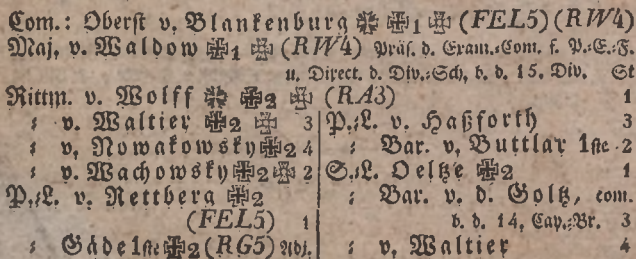 Com.: Oberst v. Blankenburg ✠ ✠1 ✠ (FEL5) (RW4)
Maj. v. Waldow ✠1 ✠ (RW4) Präs. d. Exam.:Com. f. P.:E.:F.
u. Direct. d. Div.:Sch. b. d. 15. Div. St
Rittm. v. Wolff ✠ ✠2 ✠ (RA3) 1
: v. Waltier ✠2 ✠ 3
: v. Nowakowsky ✠2 4
: v. Wachowsky ✠2 ✠2 2
P.:L. v. Rettberg ✠2
(FEL5) 1
: Gäde 1ste ✠2 (RG5) Adj.
P.:L. v. Haßforth 3
: Bar. v. Buttlar 1ste 2
S.:L. Oeltze ✠2 1
: Bar. v. d. Goltz, com.
b. d. 14. Cav.:Br. 3
: v. Waltier 4